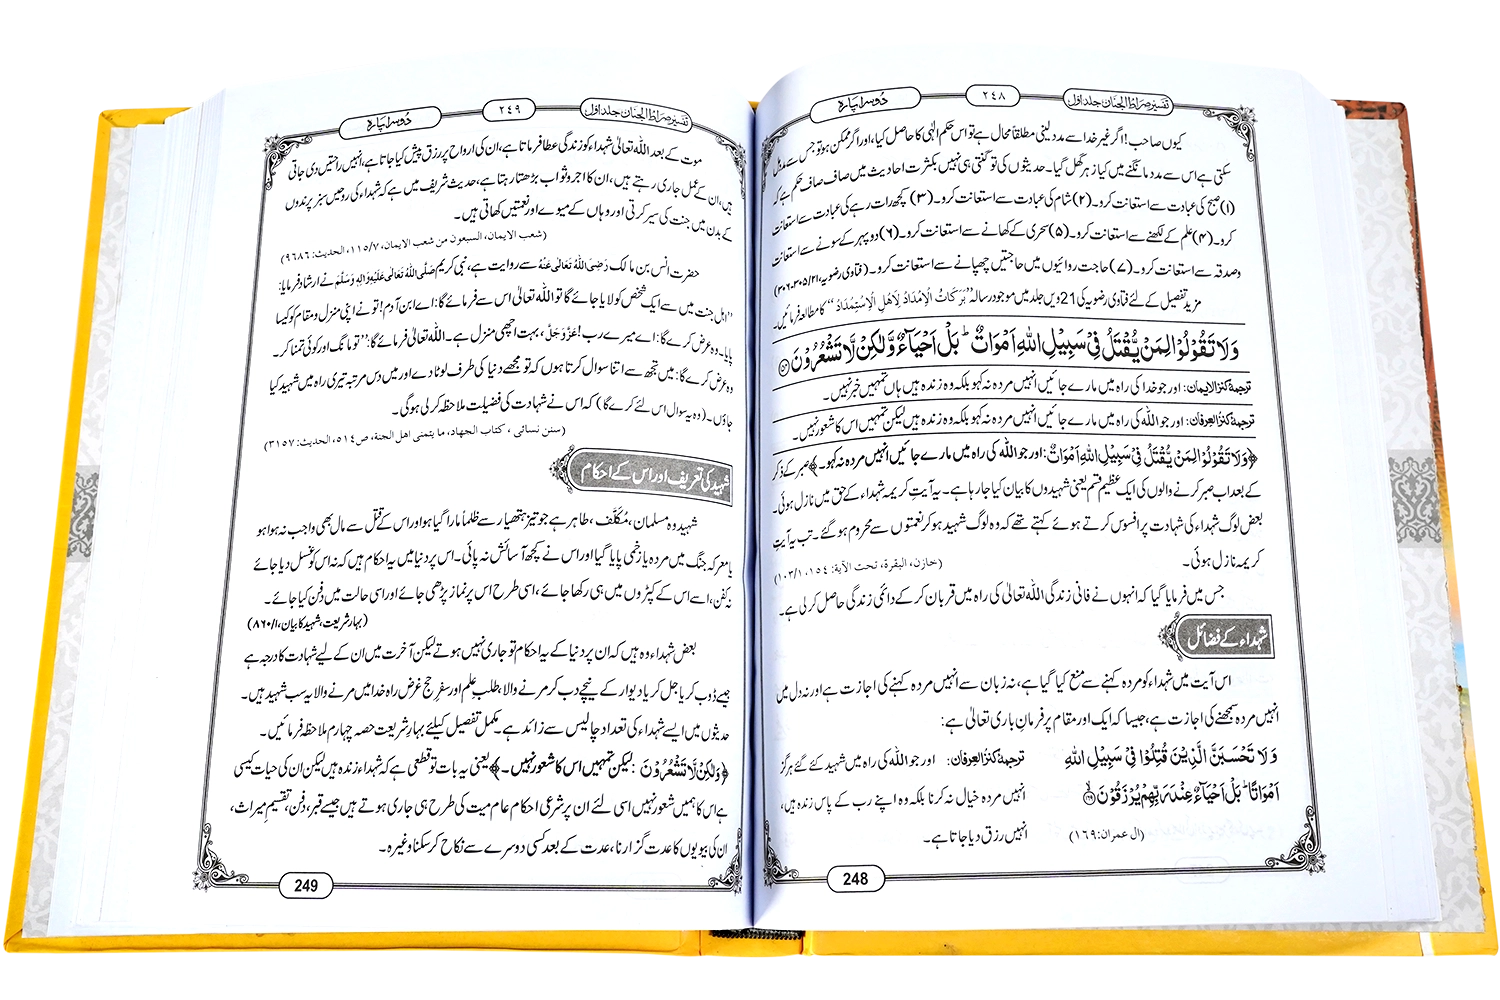 تفسیر صراط الجنان جلد اول
٢٤٨
دوسرا پارہ
کیوں صاحب! اگر غیر خدا سے مدد لینی مطلقاً محال ہے تو اس حکم الٰہی کا حاصل کیا، اور اگر ممکن ہو تو جس سے مدد مل
سکتی ہے اس سے مدد مانگنے میں کیا زہر گھل گیا۔ حدیثوں کی تو گنتی ہی نہیں بکثرت احادیث میں صاف صاف حکم ہے کہ
(۱) صبح کی عبادت سے استعانت کرو۔ (۲) شام کی عبادت سے استعانت کرو۔ (۳) کچھ رات رہے کی عبادت سے استعانت
کرو۔ (۴) علم کے لکھنے سے استعانت کرو۔ (۵) سحری کے کھانے سے استعانت کرو۔ (۶) دوپہر کے سونے سے استعانت
وصدقہ سے استعانت کرو۔ (۷) حاجت روائیوں میں حاجتیں چھپانے سے استعانت کرو۔ (فتاوی رضویہ، ۲۱/۳۰۵-۳۰۶)
مزید تفصیل کے لئے فتاوی رضویہ کی 21ویں جلد میں موجود رسالہ "بَرَکَاتُ الْاِمْدَادْ لِاَھْلِ الْاِسْتِمْدَادْ" کا مطالعہ فرمائیں۔
وَلَا تَقُوْلُوْا لِمَنْ یُّقْتَلُ فِیْ سَبِیْلِ اللّٰهِ اَمْوَاتٌؕ-بَلْ اَحْیَآءٌ وَّ لٰكِنْ لَّا تَشْعُرُوْنَ
ترجمۂ کنزالایمان: اور جو خدا کی راہ میں مارے جائیں انہیں مردہ نہ کہو بلکہ وہ زندہ ہیں ہاں تمہیں خبر نہیں۔
ترجمۂ کنزالعرفان: اور جو اللہ کی راہ میں مارے جائیں انہیں مردہ نہ کہو بلکہ وہ زندہ ہیں لیکن تمہیں اس کا شعور نہیں۔
﴿وَلَا تَقُوْلُوْا لِمَنْ یُّقْتَلُ فِیْ سَبِیْلِ اللّٰهِ اَمْوَاتٌ: اور جو اللہ کی راہ میں مارے جائیں انہیں مردہ نہ کہو۔﴾ صبر کے ذکر
کے بعد اب صبر کرنے والوں کی ایک عظیم قسم یعنی شہیدوں کا بیان کیا جا رہا ہے۔ یہ آیت کریمہ شہداء کے حق میں نازل ہوئی۔
بعض لوگ شہداء کی شہادت پر افسوس کرتے ہوئے کہتے تھے کہ وہ لوگ شہید ہو کر نعمتوں سے محروم ہو گئے۔ تب یہ آیت
کریمہ نازل ہوئی۔ (خازن، البقرة، تحت الآیة: ١٥٤، ١/١٠٣)
جس میں فرمایا گیا کہ انہوں نے فانی زندگی اللہ تعالیٰ کی راہ میں قربان کر کے دائمی زندگی حاصل کر لی ہے۔
شہداء کے فضائل
اس آیت میں شہداء کو مردہ کہنے سے منع کیا گیا ہے، نہ زبان سے انہیں مردہ کہنے کی اجازت ہے اور نہ دل میں
انہیں مردہ سمجھنے کی اجازت ہے، جیسا کہ ایک اور مقام پر فرمانِ باری تعالیٰ ہے:
وَلَا تَحْسَبَنَّ الَّذِیْنَ قُتِلُوْا فِیْ سَبِیْلِ اللّٰهِ
اَمْوَاتًاؕ-بَلْ اَحْیَآءٌ عِنْدَ رَبِّهِمْ یُرْزَقُوْنَ
(اٰل عمران: ١٦٩)
ترجمۂ کنزالعرفان: اور جو اللہ کی راہ میں شہید کئے گئے ہرگز
انہیں مردہ خیال نہ کرنا بلکہ وہ اپنے رب کے پاس زندہ ہیں،
انہیں رزق دیا جاتا ہے۔
248
تفسیر صراط الجنان جلد اول
٢٤٩
دوسرا پارہ
موت کے بعد اللہ تعالیٰ شہداء کو زندگی عطا فرماتا ہے، ان کی ارواح پر رزق پیش کیا جاتا ہے، انہیں راحتیں دی جاتی
ہیں، ان کے عمل جاری رہتے ہیں، ان کا اجر و ثواب بڑھتا رہتا ہے، حدیث شریف میں ہے کہ شہداء کی روحیں سبز پرندوں
کے بدن میں جنت کی سیر کرتی اور وہاں کے میوے اور نعمتیں کھاتی ہیں۔
(شعب الایمان، السبعون من شعب الایمان، ١١٥/٧، الحدیث: ٩٦٨٦)
حضرت انس بن مالک رَضِیَ اللّٰہُ تَعَالٰی عَنْہُ سے روایت ہے، نبی کریم صَلَّی اللّٰہُ تَعَالٰی عَلَیْہِ وَاٰلِہٖ وَسَلَّمَ نے ارشاد فرمایا:
"اہل جنت میں سے ایک شخص کو لایا جائے گا تو اللہ تعالیٰ اس سے فرمائے گا: اے ابن آدم! تو نے اپنی منزل و مقام کو کیسا
پایا۔ وہ عرض کرے گا: اے میرے رب! عَزَّوَجَلَّ، بہت اچھی منزل ہے۔ اللہ تعالیٰ فرمائے گا: "تو مانگ اور کوئی تمنا کر۔
وہ عرض کرے گا: میں تجھ سے اتنا سوال کرتا ہوں کہ تو مجھے دنیا کی طرف لوٹا دے اور میں دس مرتبہ تیری راہ میں شہید کیا
جاؤں۔ (وہ یہ سوال اس لئے کرے گا) کہ اس نے شہادت کی فضیلت ملاحظہ کر لی ہوگی۔
(سنن نسائی، کتاب الجهاد، ما یتمنی اهل الجنة، ص ٥١٤، الحدیث: ٣١٥٧)
شہید کی تعریف اور اس کے احکام
شہید وہ مسلمان، مُکَلَّف، طاہر ہے جو تیز ہتھیار سے ظلماً مارا گیا ہو اور اس کے قتل سے مال بھی واجب نہ ہوا ہو
یا معرکہ جنگ میں مردہ یا زخمی پایا گیا اور اس نے کچھ آسائش نہ پائی۔ اس پر دنیا میں یہ احکام ہیں کہ نہ اس کو غسل دیا جائے
نہ کفن، اسے اس کے کپڑوں میں ہی رکھا جائے، اسی طرح اس پر نماز پڑھی جائے اور اسی حالت میں دفن کیا جائے۔
(بہار شریعت، شہید کا بیان، ۱/۸۶۰)
بعض شہداء وہ ہیں کہ ان پر دنیا کے یہ احکام تو جاری نہیں ہوتے لیکن آخرت میں ان کے لیے شہادت کا درجہ ہے
جیسے ڈوب کر یا جل کر یا دیوار کے نیچے دب کر مرنے والا، طلبِ علم اور سفرِ حج غرض راہ خدا میں مرنے والا یہ سب شہید ہیں۔
حدیثوں میں ایسے شہداء کی تعداد چالیس سے زائد ہے۔ مکمل تفصیل کیلئے بہار شریعت حصہ چہارم ملاحظہ فرمائیں۔
﴿وَلٰكِنْ لَّا تَشْعُرُوْنَ: لیکن تمہیں اس کا شعور نہیں۔﴾ یعنی یہ بات تو قطعی ہے کہ شہداء زندہ ہیں لیکن ان کی حیات کیسی
ہے اس کا ہمیں شعور نہیں اسی لئے ان پر شرعی احکام عام میت کی طرح ہی جاری ہوتے ہیں جیسے قبر، دفن، تقسیمِ میراث،
ان کی بیویوں کا عدت گزارنا، عدت کے بعد کسی دوسرے سے نکاح کر سکنا وغیرہ۔
249